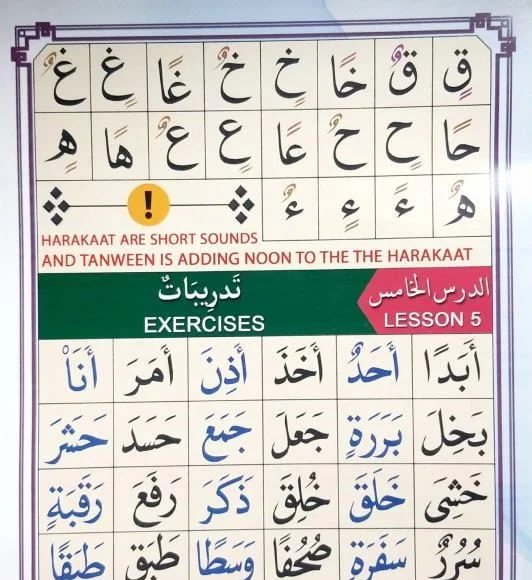 قٍ قٌ خًا خٍ خٌ غًا غٍ غٌ
حًا حٍ حٌ عًا عٍ عٌ هًا هٍ
هٌ ءً ءٍ ءٌ !
HARAKAAT ARE SHORT SOUNDS
AND TANWEEN IS ADDING NOON TO THE THE HARAKAAT
الدرس الخامس تَدرِيبَاتٌ
LESSON 5 EXERCISES
أَبَدًا أَحَدٌ أَخَذَ أَذِنَ أَمَرَ أَنَا۠
بَخِلَ بَرَرَةٍ جَعَلَ جَمَعَ حَسَدَ حَشَرَ
خَشِىَ خَلَقَ خُلِقَ ذَكَرَ رَفَعَ رَقَبَةٍ
سُرُرٌ سَفَرَةٍ صُحُفًا وَسَطًا طَبَقٍ طَبَقًا